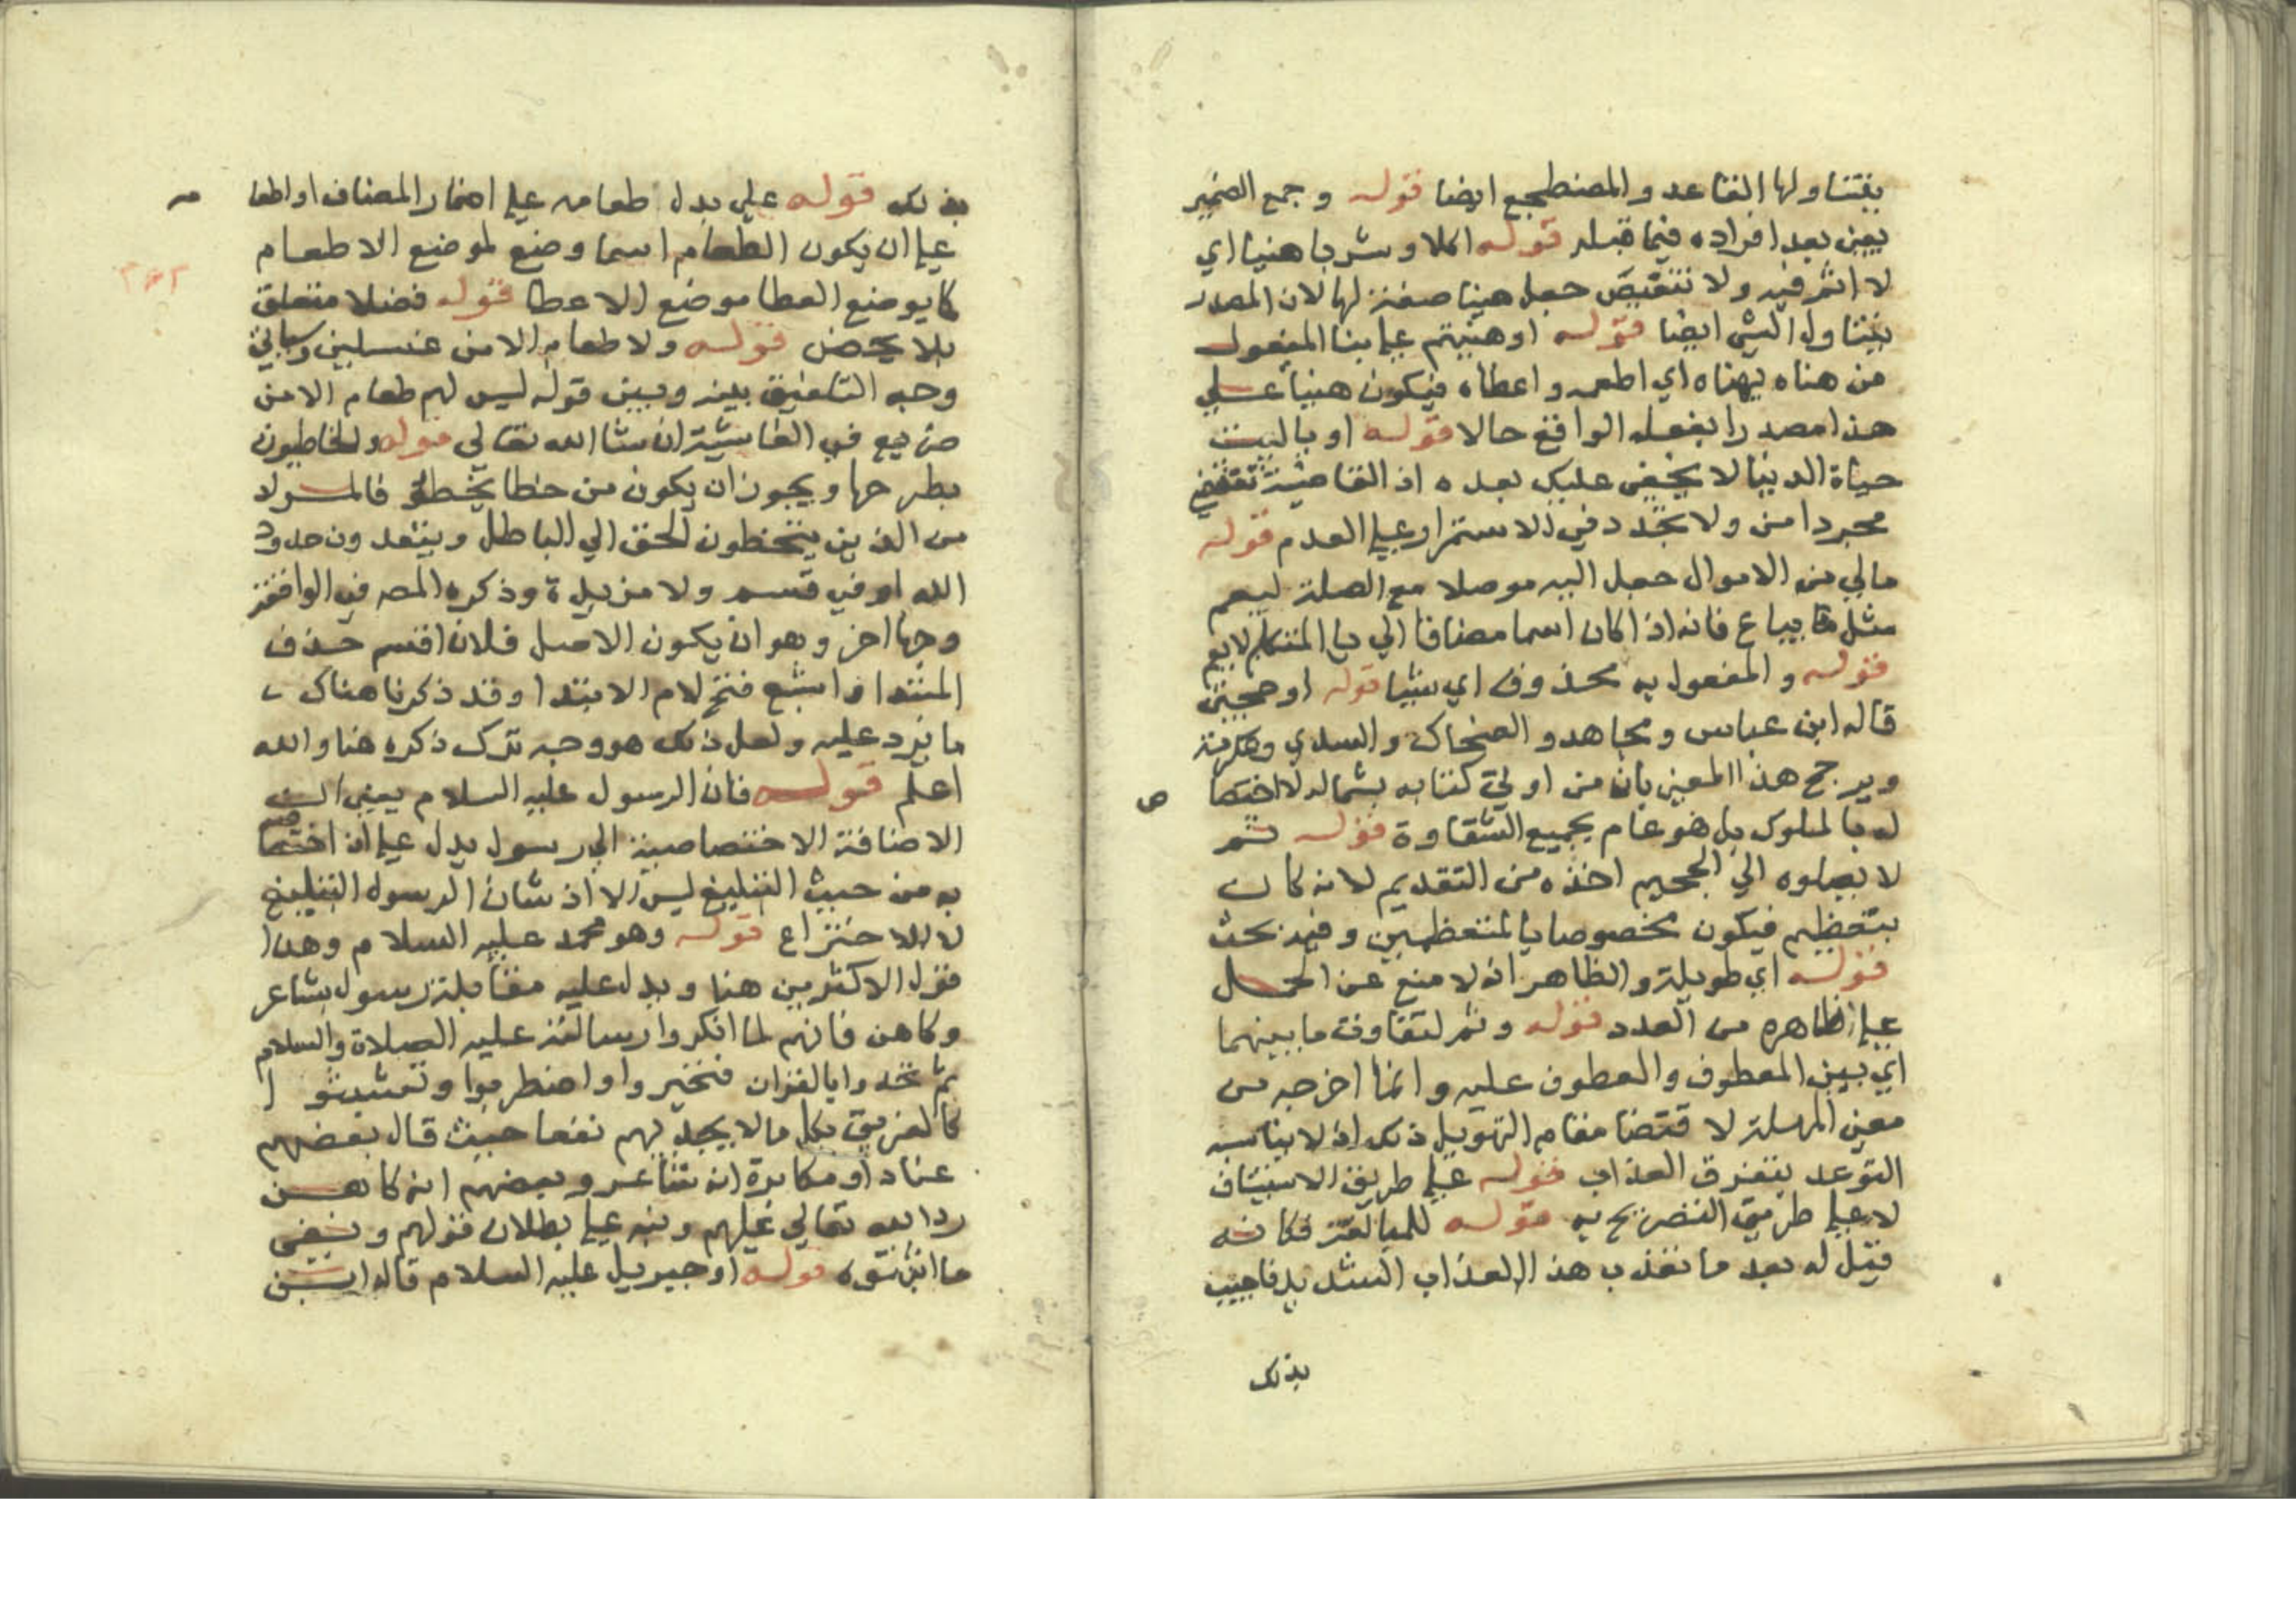 يتناولها القاعد والمضطجع ايضا قوله وجمع الضمير
يعني بعد افراده فيما قبله قوله اكلا وشربا هنيا اي
لا اثم فيه ولا تنغيص جعل هنيا صفة لها لان المصدر
يتناول الشي ايضا قوله او هنيتم علي بنا المفعول
من هناه يهناه اي اطعمه واعطاه فيكون هنيا علي
هذا مصدرا بفعله الواقع حالا قوله او ياليت
حياة الدنيا لا يخفي عليك بعده اذ القاضية تقتضي
مجردا من ولا تجدد في الاستمرار علي العدم قوله
مالي من الاموال جعل اليه موصلا مع الصلة ليعم
مثل فانه اذا كان اسما مضافا الي يا المتكلم لا يعم
قوله والمفعول به محذوف اي شيا قوله او حجتي
قاله ابن عباس ومجاهد والضحاك والسدي وعكرمة
ويرجح هذا المعني بان من اوتي كتابه بشماله لا اختصا ص
له بالملوك بل هو عام بجميع الشقاوة قوله ثم
لا يصلوه الي الجحيم اخذه من التقديم لانه كان
يتعظم فيكون مخصوصا بالمتعظمين وفيه بحث
قوله اي طويلة والظاهر انه لا منع عن الحمل
علي ظاهره من العدد قوله وثم لتفاوت ما بينهما
اي بين المعطوف والمعطوف عليه وانما اخرجه من
معني المهلة لاقتضا مقام التهويل ذلك اذ لا يناسب
التوعد بتفرق العذاب قوله علي طريق الاستيناف
لا علي طريق التصريح به قوله للمبالغة فكانه
قيل له بعد ما تعذب هذا العذاب الشديد فاجيب
بذلك
بذلك قوله علي بدل طعامه علي اضمار المضاف او اطعا مه
علي ان يكون الطعام اسما وضع لموضع الاطعام
كما يوضع العطا موضع الاعطا قوله فضلا متعلق
بلا يحض قوله ولا طعام الا من غسلين وسياتي
وجه التلفيق بينه وبين قوله ليس لهم طعام الا من
ضريع في الغاشية ان شا الله تعالي قوله والخاطيون
بطرحها ويجوز ان يكون من خطا يخطو فالمراد
من الذين يتخطون الحق الي الباطل ويتعدون حدود
الله او في قسم ولا مزيدة وذكره المصـ في الواقعة
وجها اخر وهو ان يكون الاصل فلانا اقسم حذف
المبتدا واشبع فتح لام الابتدا وقد ذكرنا هناك
ما يرد عليه ولعل ذلك هو وجه ترك ذكره هنا والله
اعلم قوله فان الرسول عليه السلام يعني ان
الاضافة الاختصاصية الي رسول يدل علي ان اختصاصه
به من حيث التبليغ ليس الا اذ شان الرسول التبليغ
لا الاختراع قوله وهو محمد عليه السلام وهذا
قول الاكثرين هنا ويدل عليه مقابلة رسول بشاعر
وكاهن فانهم لما انكروا رسالته عليه الصلاة والسلام
ثم تحدوا بالقران فتحيروا واضطربوا وتشبثوا
كالغريق بكل ما لا يجديهم نفعا حيث قال بعضهم
عنادا ومكابرة انه شاعر وبعضهم انه كاهن
رد الله تعالي عليهم ونبه علي بطلان قولهم ونفي
ما اثبتوه قوله او جبريل عليه السلام قاله ابن